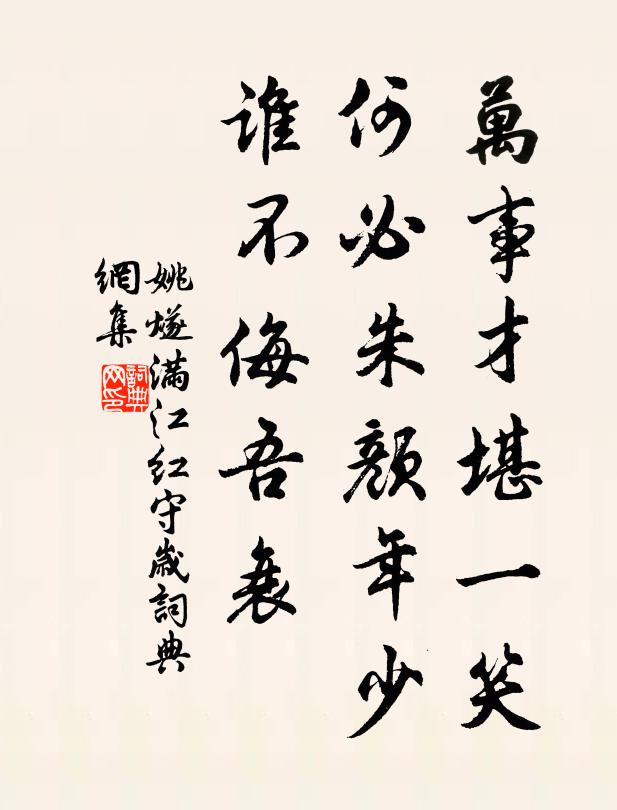 萬事才堪一笑
何必朱顏年少
誰不侮吾衰
姚燧滿江紅守歲詞典
網集
詞典
网印